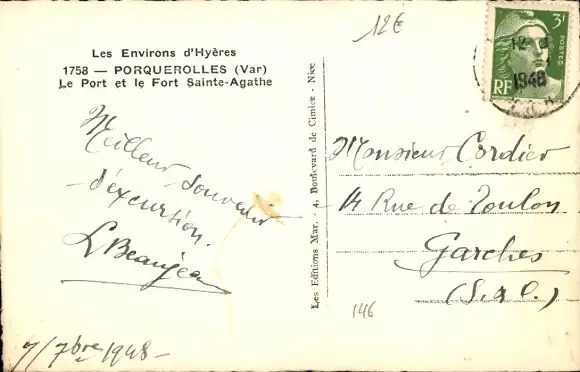 Les Environs d'Hyères
1758 — PORQUEROLLES (Var)
Le Port et le Fort Sainte-Agathe
12€
3F
POSTES
RF
12
1948
Meilleur souvenir
d'excursion.
L Beaujean
7/7bre 1948 -
Les Editions Mar. - 4, Boulevard de Cimiez - Nice
Monsieur Cordier
14 Rue de Toulon
Garches
(S.&O.)
146